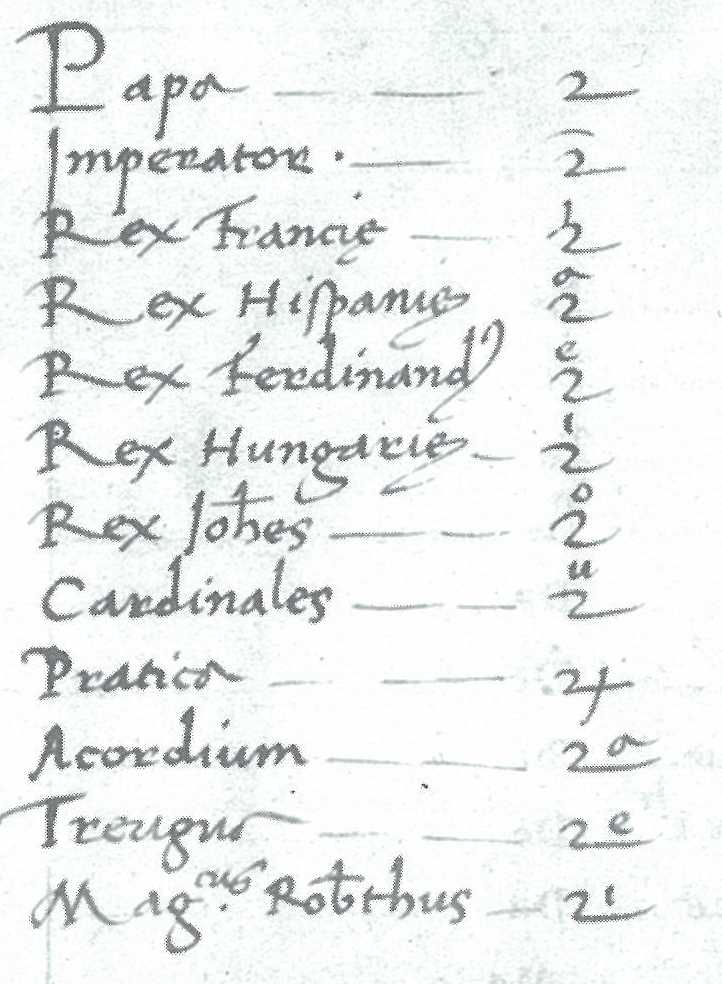 Papa — — 2
Imperator . — 2̄
Rex Francie — 2
Rex Hispanie 2ᵃ
Rex Ferdinand 2ᵉ
Rex Hungarie — 2ⁱ
Rex Johes — — 2ᵒ
Cardinales — — 2ᵘ
Pratica — — 2
Acordium — — 2ᵃ
Treugua — — 2ᵉ
Mag.cus Robthus — 2ⁱ